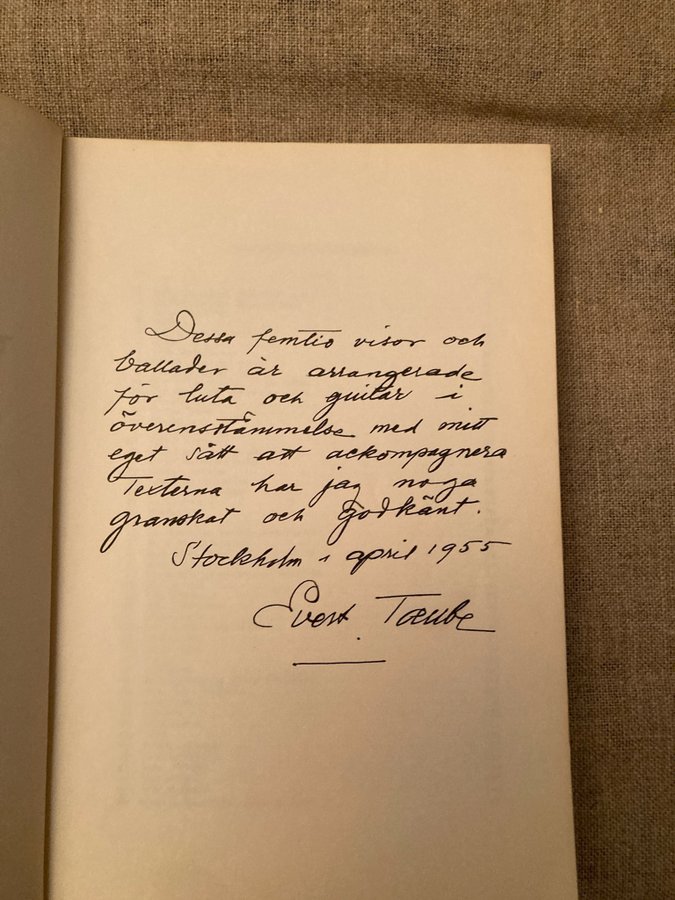 Dessa femtio visor och
ballader är arrangerade
för luta och guitar i
överensstämmelse med mitt
eget sätt att ackompagnera
Texterna har jag noga
granskat och godkänt.
Stockholm i april 1955
Evert Taube